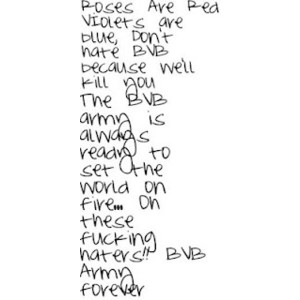 Roses Are Red
Violets are
blue, Don't
hate BVB
because we'll
kill you
The BVB
army is
always
ready to
set the
world on
fire... Oh
these
fucking
haters!! BVB
Army
forever